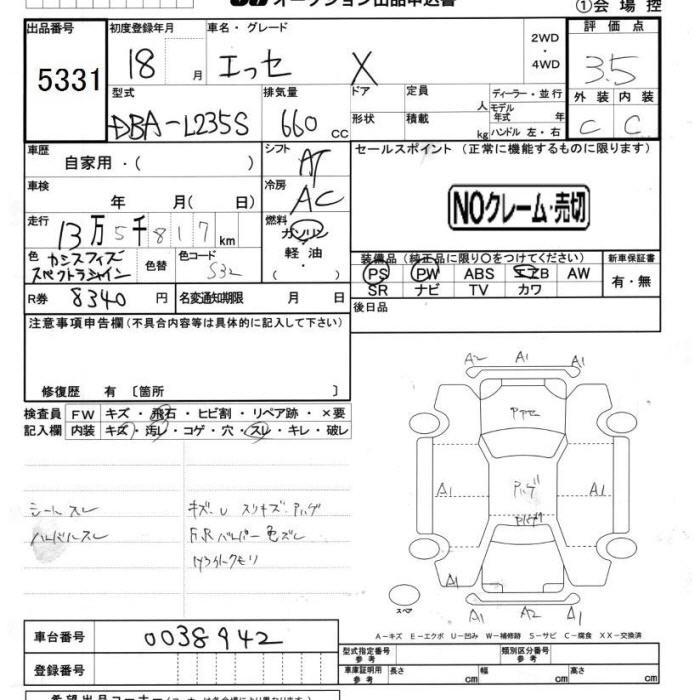 オークション出品申込書
①会場控
出品番号 初度登録年月 車名・グレード 2WD・4WD 評価点
5331 18 月 エッセ X 3.5
型式 排気量 ドア 定員 人 ディーラー・並行 外装 内装
モデル年式 年
DBA-L235S 660 cc 形状 積載 kg ハンドル 左・右 C C
車歴 シフト セールスポイント (正常に機能するものに限ります)
自家用・( ) AT
車検 冷房
年 月( 日) AC NOクレーム・売切
走行 燃料
13万5千817km ガソリン
軽油
・( )
色 カシスフィズ 色替 色コード
スペクトラシャイン S32
装備品 (純正品に限り○をつけてください) 新車保証書
PS PW ABS エアB AW 有・無
SR ナビ TV カワ
R券 8340円 名変通知期限 月 日 後日品
注意事項申告欄(不具合内容等は具体的に記入して下さい)
修復歴 有 〔箇所 〕
検査員 FW キズ・飛石・ヒビ割・リペア跡・×要
記入欄 内装 キズ・汚レ・コゲ・穴・スレ・キレ・破レ
シートスレ キズ・U スリキズ・アハゲ
ハンドルスレ F.Rバンパー色ズレ
A2 A1 A1
A1 A1
A1
A1 A2 A1
スペア
A-キズ E-エクボ U-凹み W-補修跡 S-サビ C-腐食 XX-交換済
車台番号 0038942
型式指定番号 参考 類別区分番号 参考
登録番号 車庫証明用 参考 長さ cm 幅 cm 高さ cm
希望出品コーナー